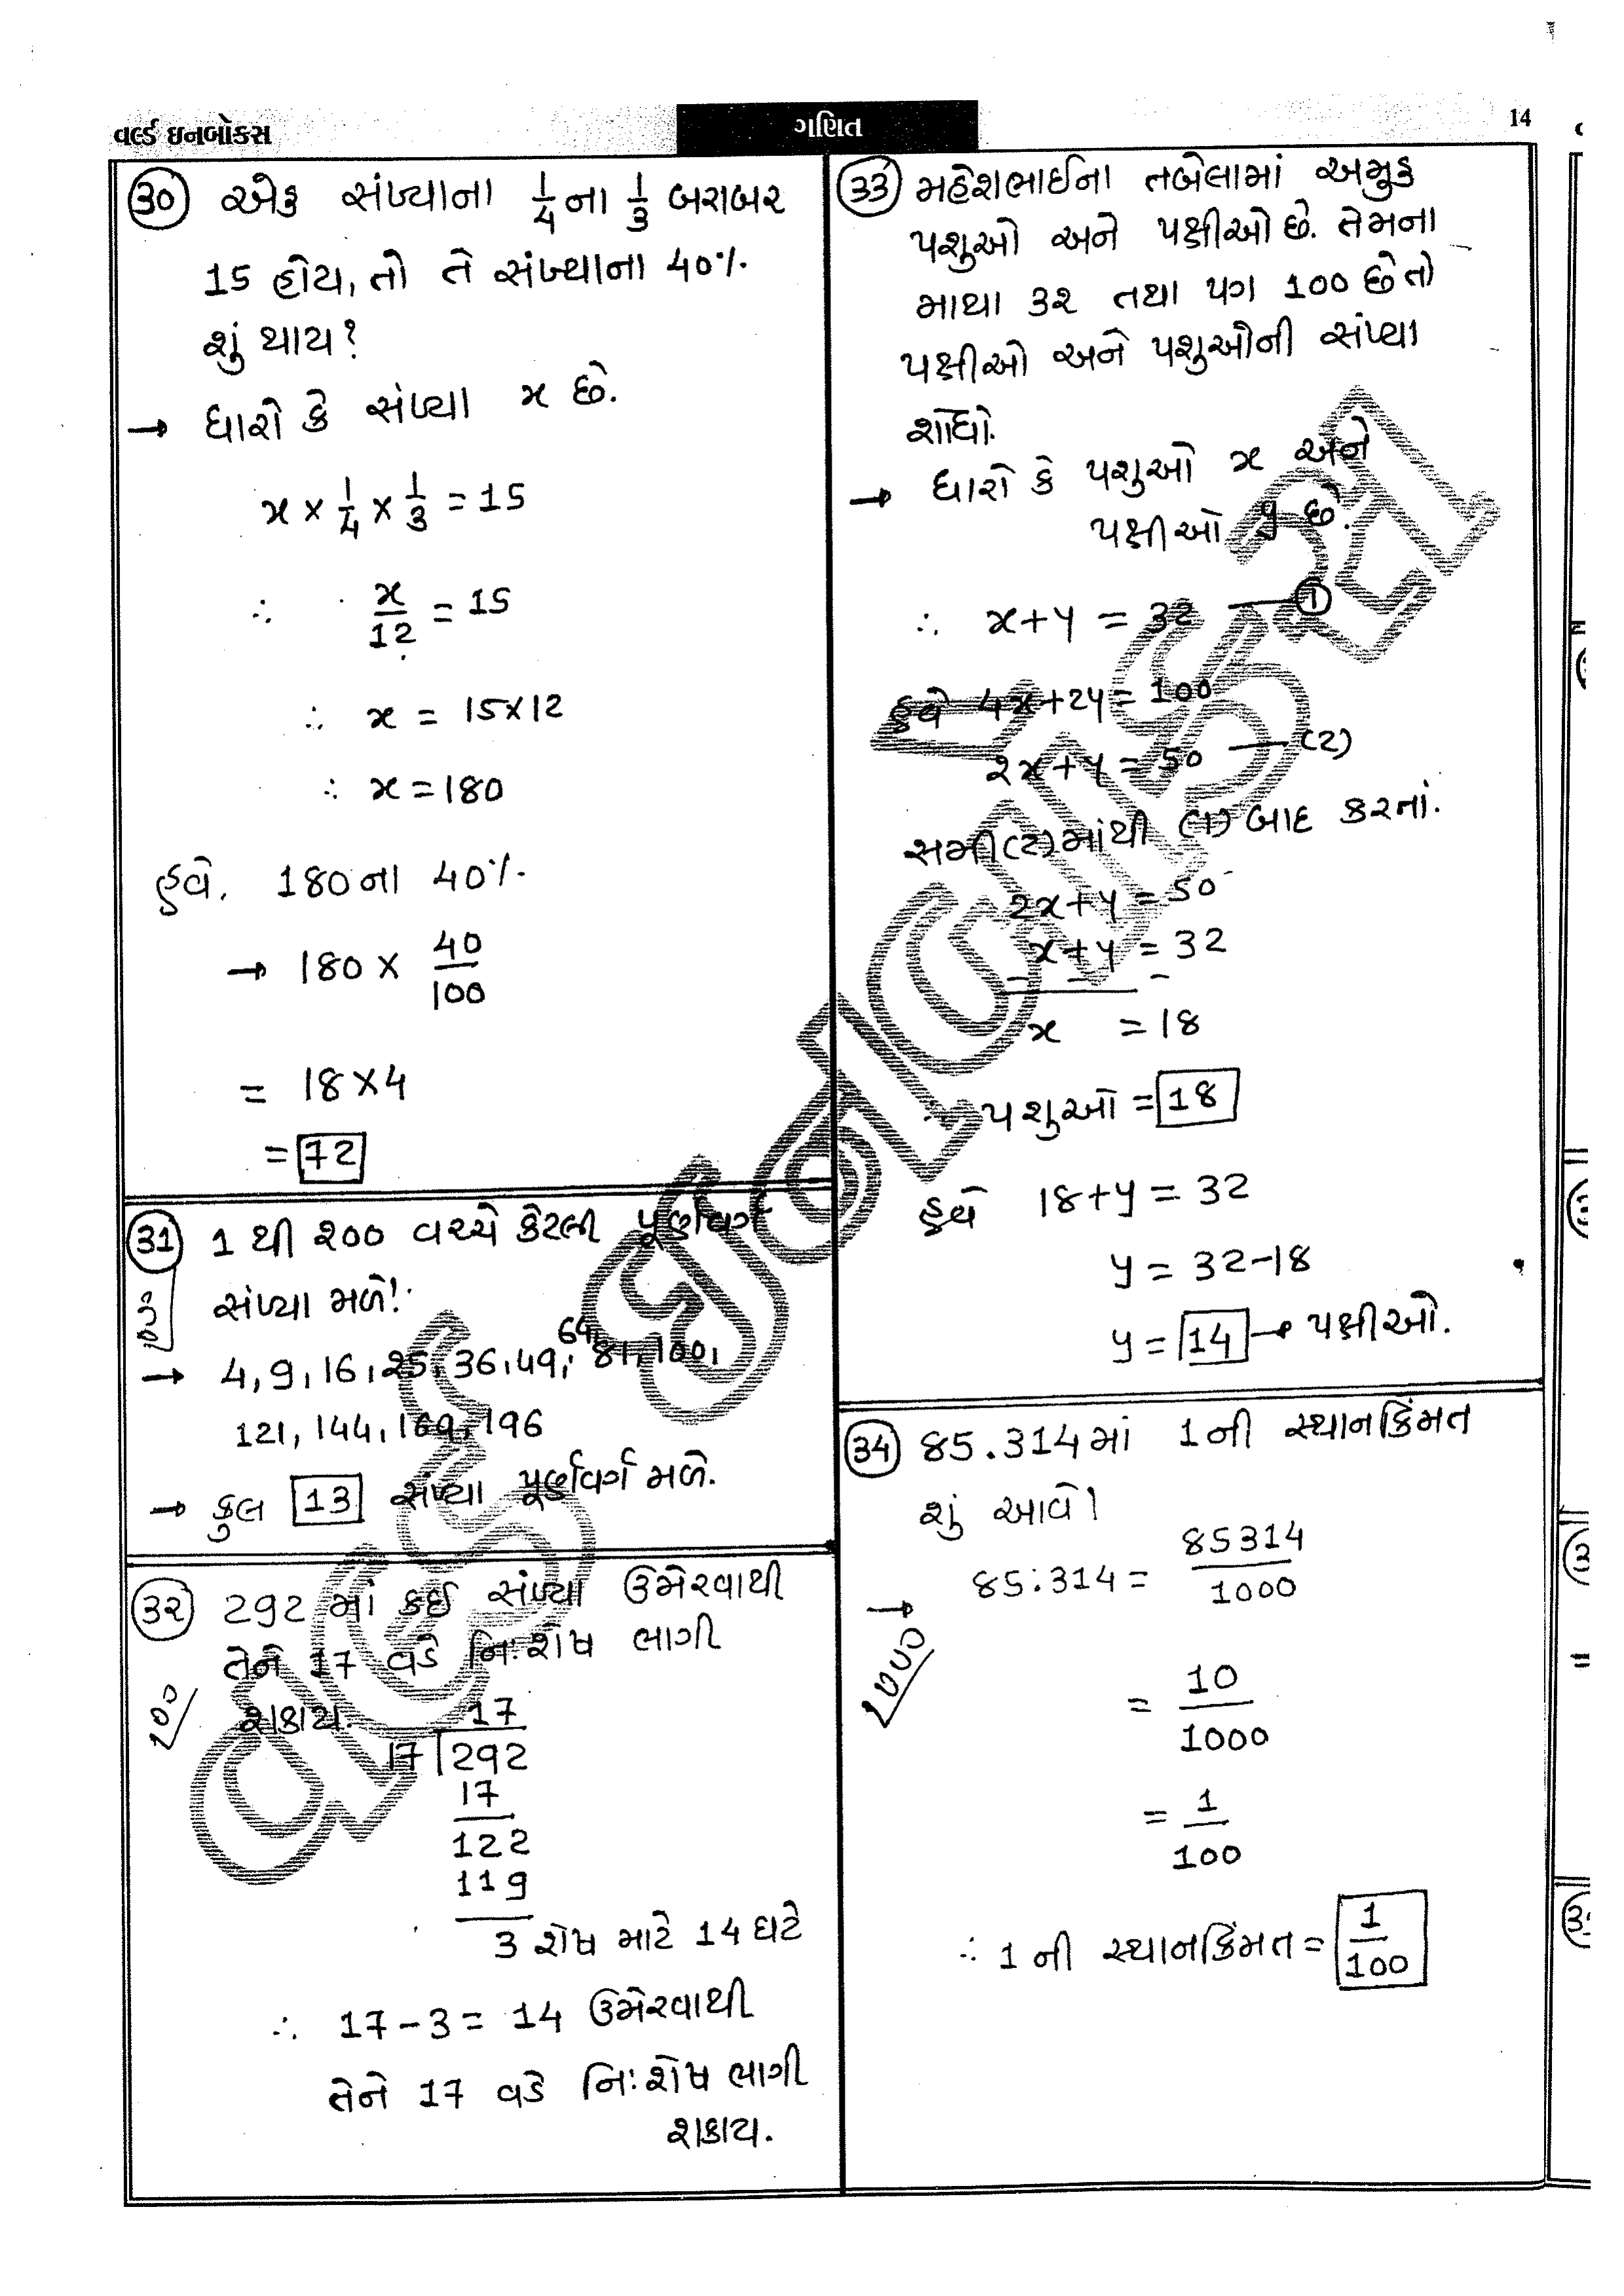 વર્લ્ડ ઇનબોક્સ
ગણિત
14
30 એક સંખ્યાના 1/4 ના 1/3 બરાબર
15 હોય, તો તે સંખ્યાના 40%
શું થાય?
→ ધારો કે સંખ્યા x છે.
x × 1/4 × 1/3 = 15
∴ x/12 = 15
∴ x = 15×12
∴ x = 180
હવે. 180ના 40%
→ 180 × 40/100
= 18×4
= 72
31 1 થી ૨૦૦ વચ્ચે કેટલી પૂર્ણવર્ગ
સંખ્યા મળે!
→ 4, 9, 16, 25, 36, 49, 64, 81, 100,
121, 144, 169, 196
→ કુલ 13 સંખ્યા પૂર્ણવર્ગ મળે.
૩૨ 292 માં કઈ સંખ્યા ઉમેરવાથી
તેને 17 વડે નિઃશેષ ભાગી
શકાય.
17
17 292
17
122
119
3 શેષ માટે 14 ઘટે
∴ 17-3 = 14 ઉમેરવાથી
તેને 17 વડે નિઃશેષ ભાગી
શકાય.
33 મહેશભાઈના તબેલામાં અમુક
પશુઓ અને પક્ષીઓ છે. તેમના
માથા ૩૨ તથા પગ 100 છે તો
પક્ષીઓ અને પશુઓની સંખ્યા
શોધો.
→ ધારો કે પશુઓ x અને
પક્ષીઓ y છે.
∴ x+y = 32 — 1
હવે 4x+2y = 100
2x+y = 50 — (2)
સમી(2)માંથી (1) બાદ કરતાં.
2x+y = 50
x+y = 32
- - -
x = 18
∴ પશુઓ = 18
હવે 18+y = 32
y = 32-18
y = 14 → પક્ષીઓ.
34 85.314માં 1ની સ્થાનકિંમત
શું આવે!
→ 85.314 = 85314/1000
= 10/1000
= 1/100
∴ 1 ની સ્થાનકિંમત = 1/100